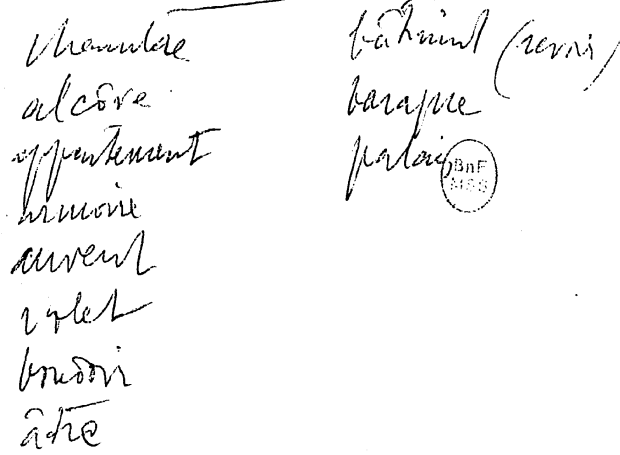 chambre
alcôve
appartement
armoire
auvent
volet
boudoir
âtre
bâtiment (revoir)
baraque
palais
BnF
MSS